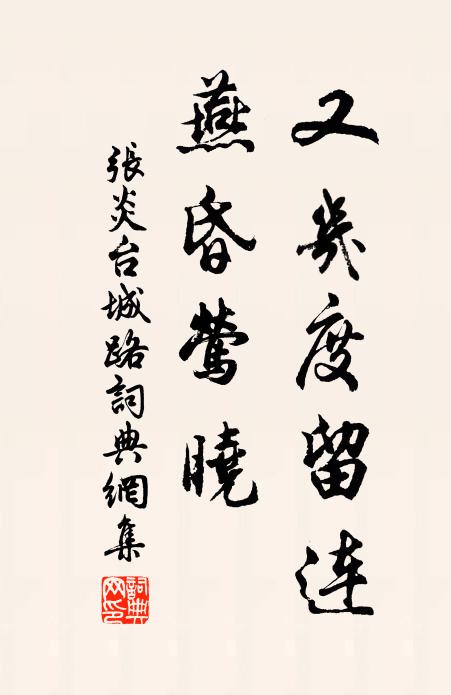 又幾度留連
燕昏鶯曉
張炎台城路詞典網集
詞典网印